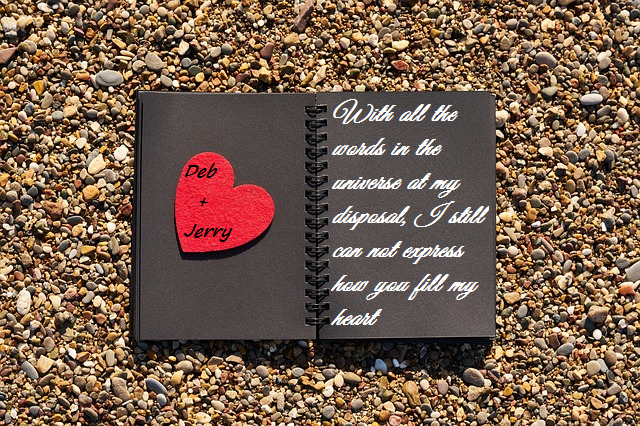 Deb
+
Jerry
With all the
words in the
universe at my
disposal, I still
can not express
how you fill my
heart